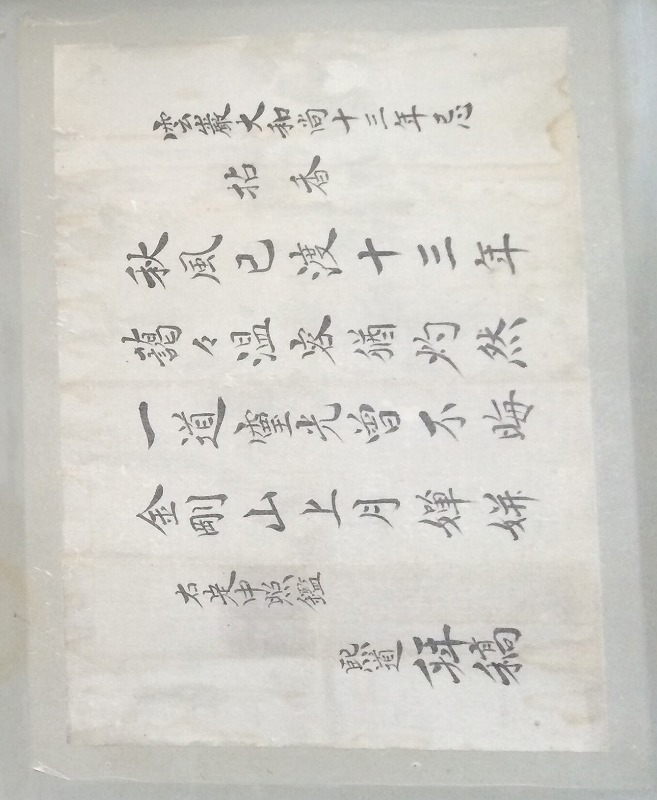 雲巌大和尚十三年忌
拈香
秋風已渡十三年
藹々温容猶灼然
一道靈光曽不晦
金剛山上月嬋妍
右 照鑑
煕道 拝稿